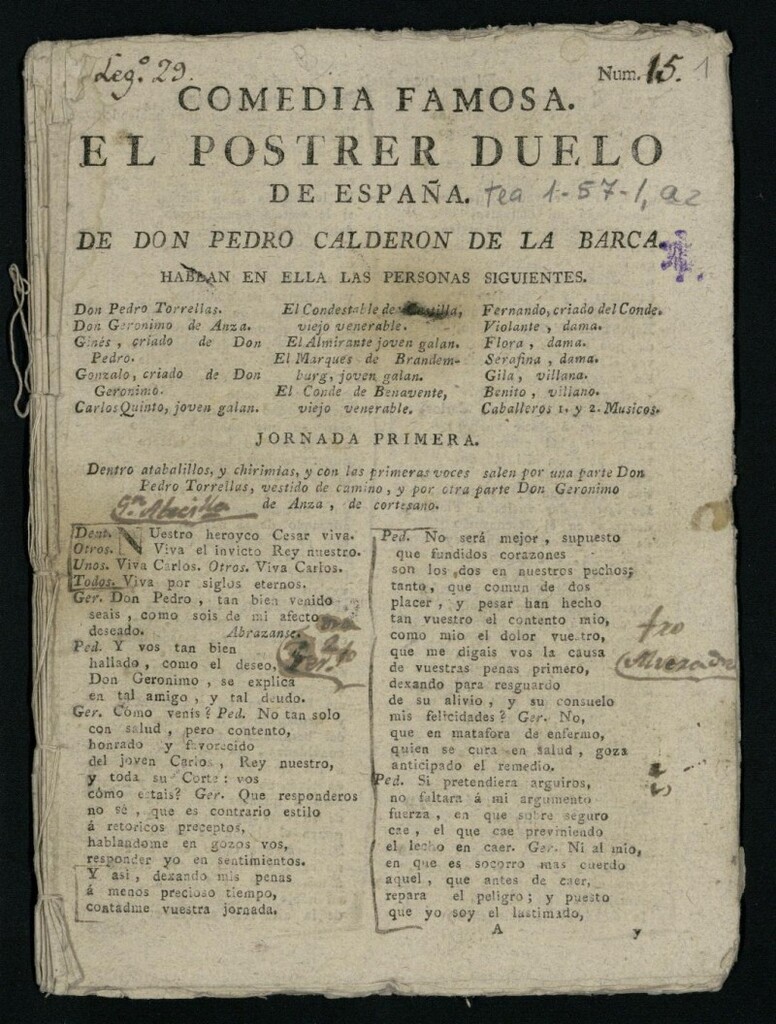 Leg.º 29.
Num. 15. 1
COMEDIA FAMOSA.
EL POSTRER DUELO
DE ESPAÑA. tea 1-57-1, a2
DE DON PEDRO CALDERON DE LA BARCA.
HABLAN EN ELLA LAS PERSONAS SIGUIENTES.
Don Pedro Torrellas.
Don Geronimo de Anza.
Ginés, criado de Don
Pedro.
Gonzalo, criado de Don
Geronimo.
Carlos Quinto, joven galan.
El Condestable de Castilla,
viejo venerable.
El Almirante joven galan.
El Marques de Brandem-
burg, joven galan.
El Conde de Benavente,
viejo venerable.
Fernando, criado del Conde.
Violante, dama.
Flora, dama.
Serafina, dama.
Gila, villana.
Benito, villano.
Caballeros 1. y 2. Musicos.
JORNADA PRIMERA.
Dentro atabalillos, y chirimias, y con las primeras voces salen por una parte Don
Pedro Torrellas, vestido de camino, y por otra parte Don Geronimo
de Anza, de cortesano.
Dent. NUestro heroyco Cesar viva.
Otros. Viva el invicto Rey nuestro.
Unos. Viva Carlos. Otros. Viva Carlos.
Todos. Viva por siglos eternos.
Ger. Don Pedro, tan bien venido
seais, como sois de mi afecto
deseado. Abrazanse.
Ped. Y vos tan bien
hallado, como el deseo,
Don Geronimo, se explica
en tal amigo, y tal deudo.
Ger. Cómo venis? Ped. No tan solo
con salud, pero contento,
honrado y favorecido
del joven Carlos, Rey nuestro,
y toda su Corte: vos
cómo estais? Ger. Que responderos
no sé, que es contrario estilo
á retoricos preceptos,
hablandome en gozos vos,
responder yo en sentimientos.
Y asi, dexando mis penas
á menos precioso tiempo,
contadme vuestra jornada.
Ped. No será mejor, supuesto
que fundidos corazones
son los dos en nuestros pechos;
tanto, que comun de dos
placer, y pesar han hecho
tan vuestro el contento mio,
como mio el dolor vuestro,
que me digais vos la causa
de vuestras penas primero,
dexando para resguardo
de su alivio, y su consuelo
mis felicidades? Ger. No,
que en matafora de enfermo,
quien se cura en salud, goza
anticipado el remedio.
Ped. Si pretendiera arguiros,
no faltara á mi argumento
fuerza, en que sobre seguro
cae, el que cae previniendo
el lecho en caer. Ger. Ni al mio,
en que es socorro mas cuerdo
aquel, que antes de caer,
repara el peligro; y puesto
que yo soy el lastimado,
A y